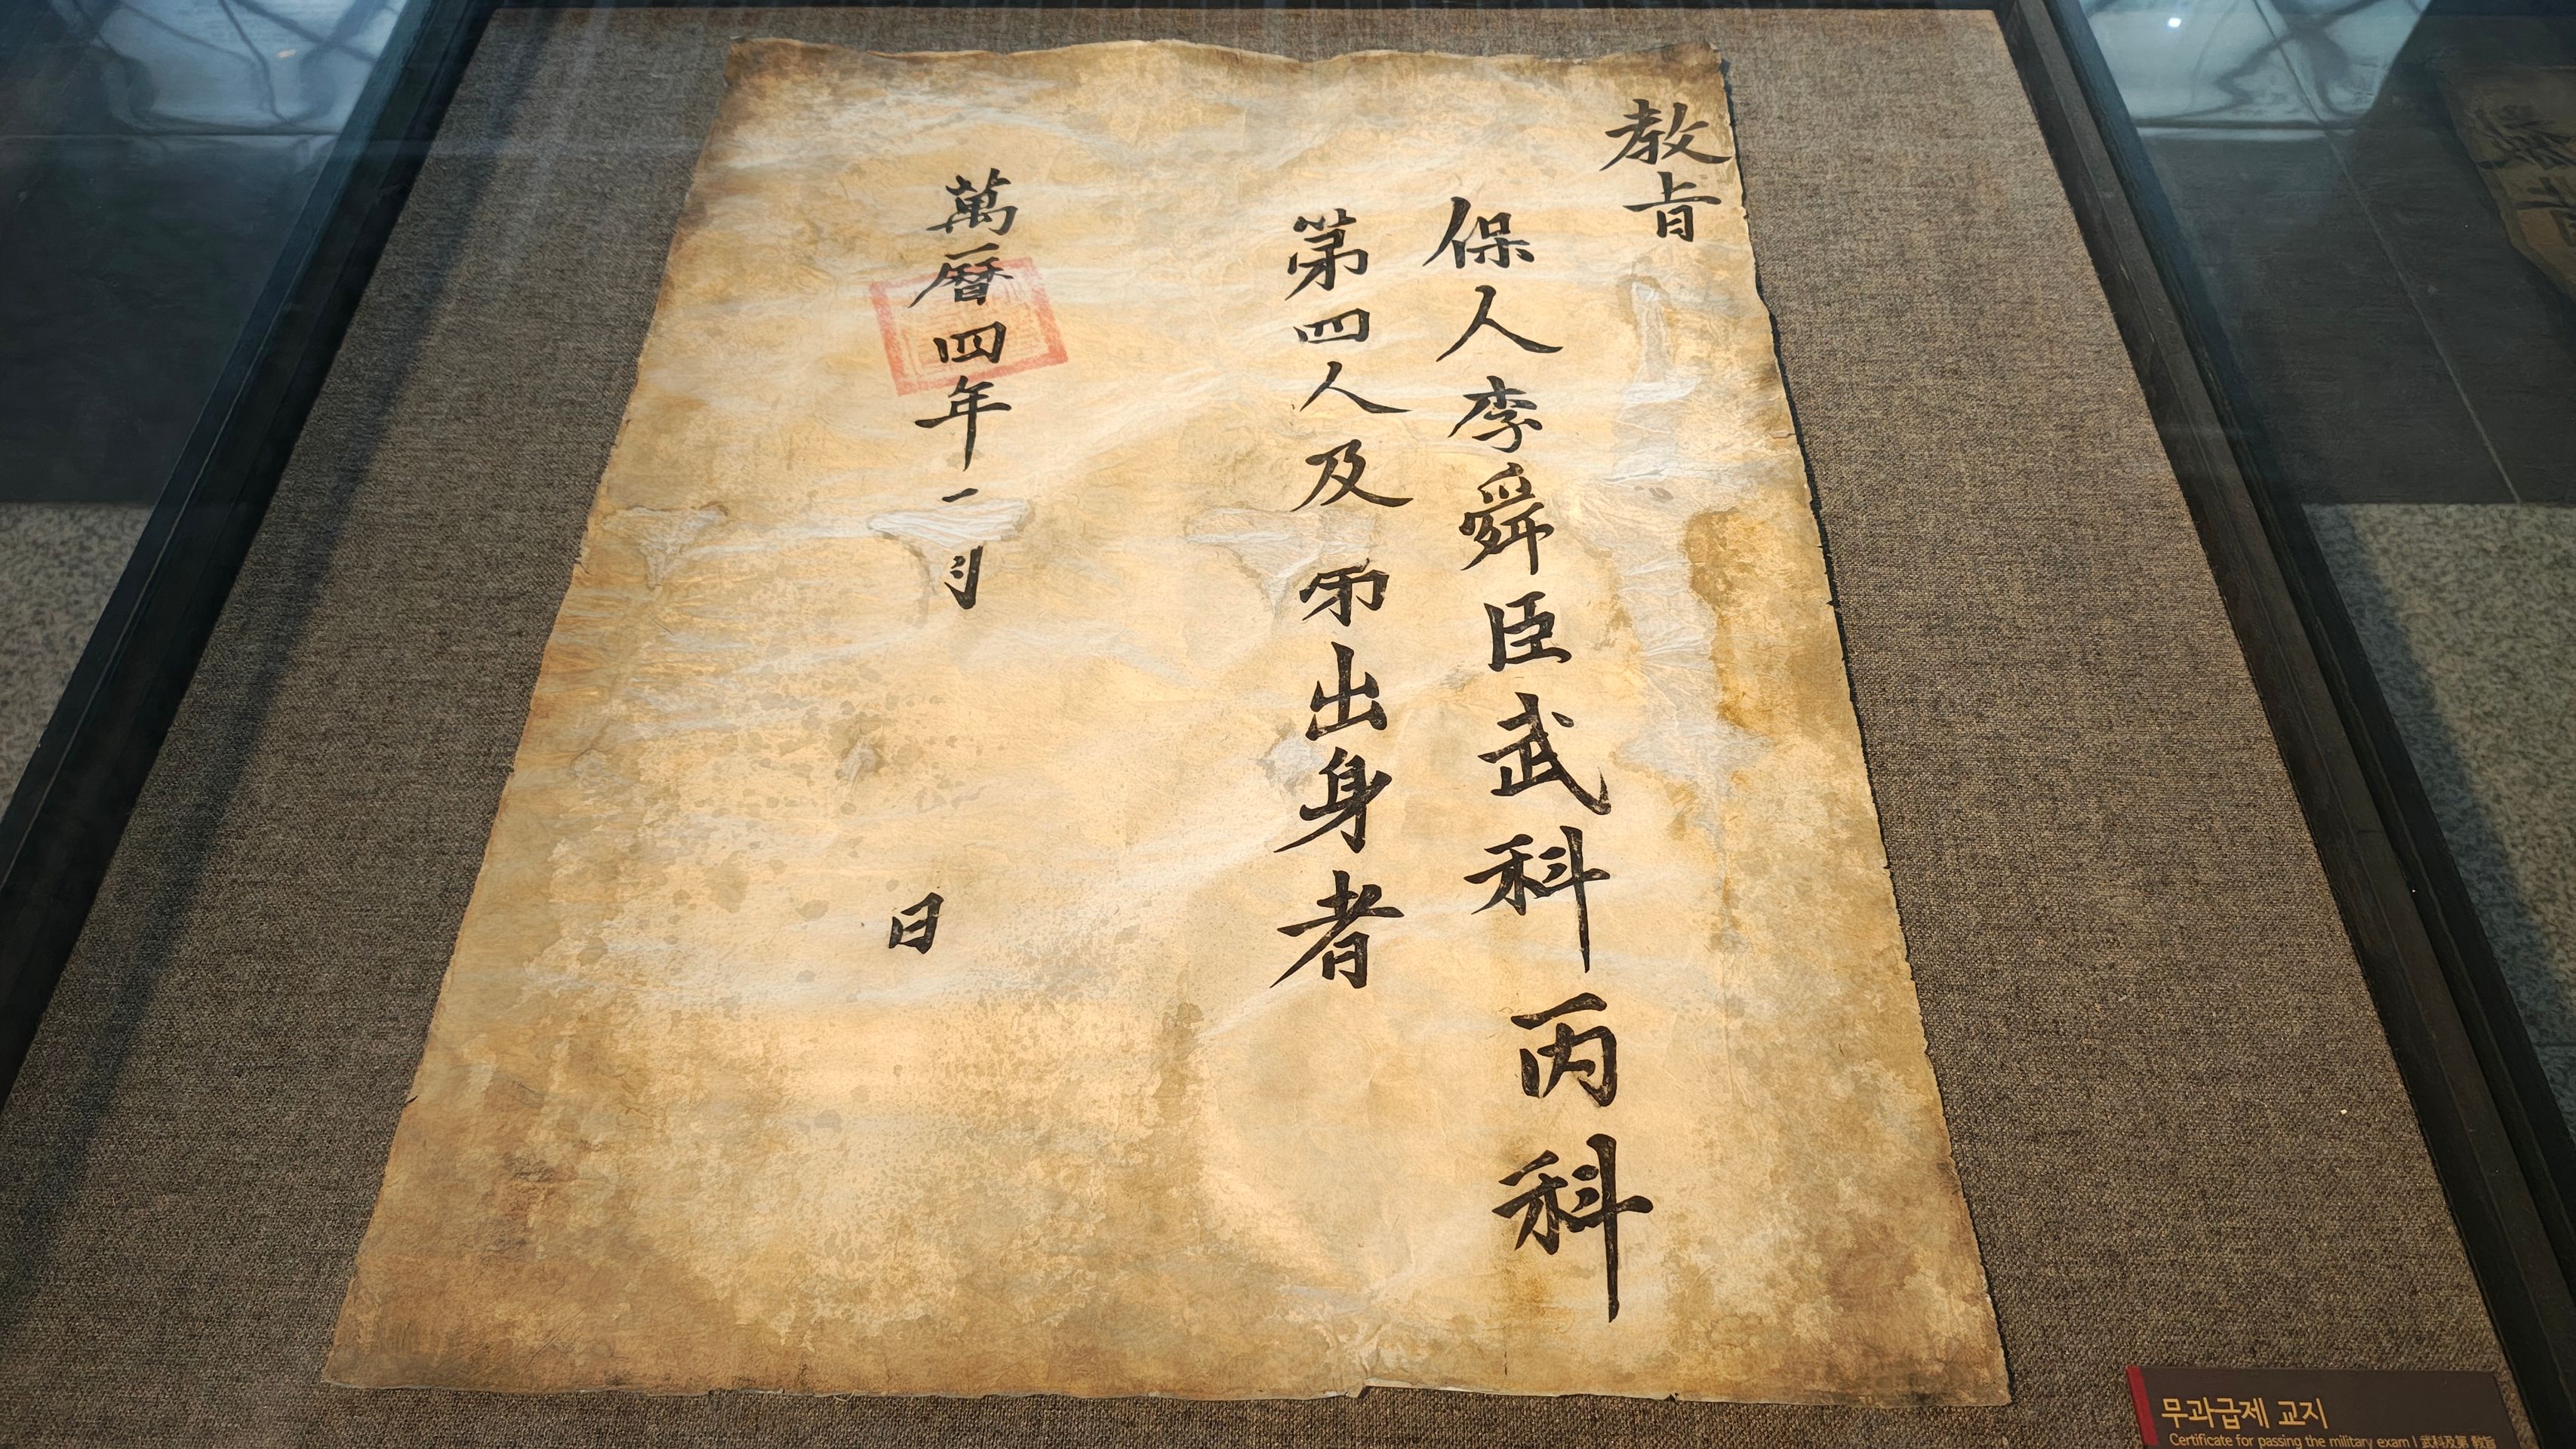 教旨
保人李舜臣武科丙科
第四人及出身者
萬暦四年一月 日
무과급제 교지
Certificate for passing the military exam | 武科及第 敎旨